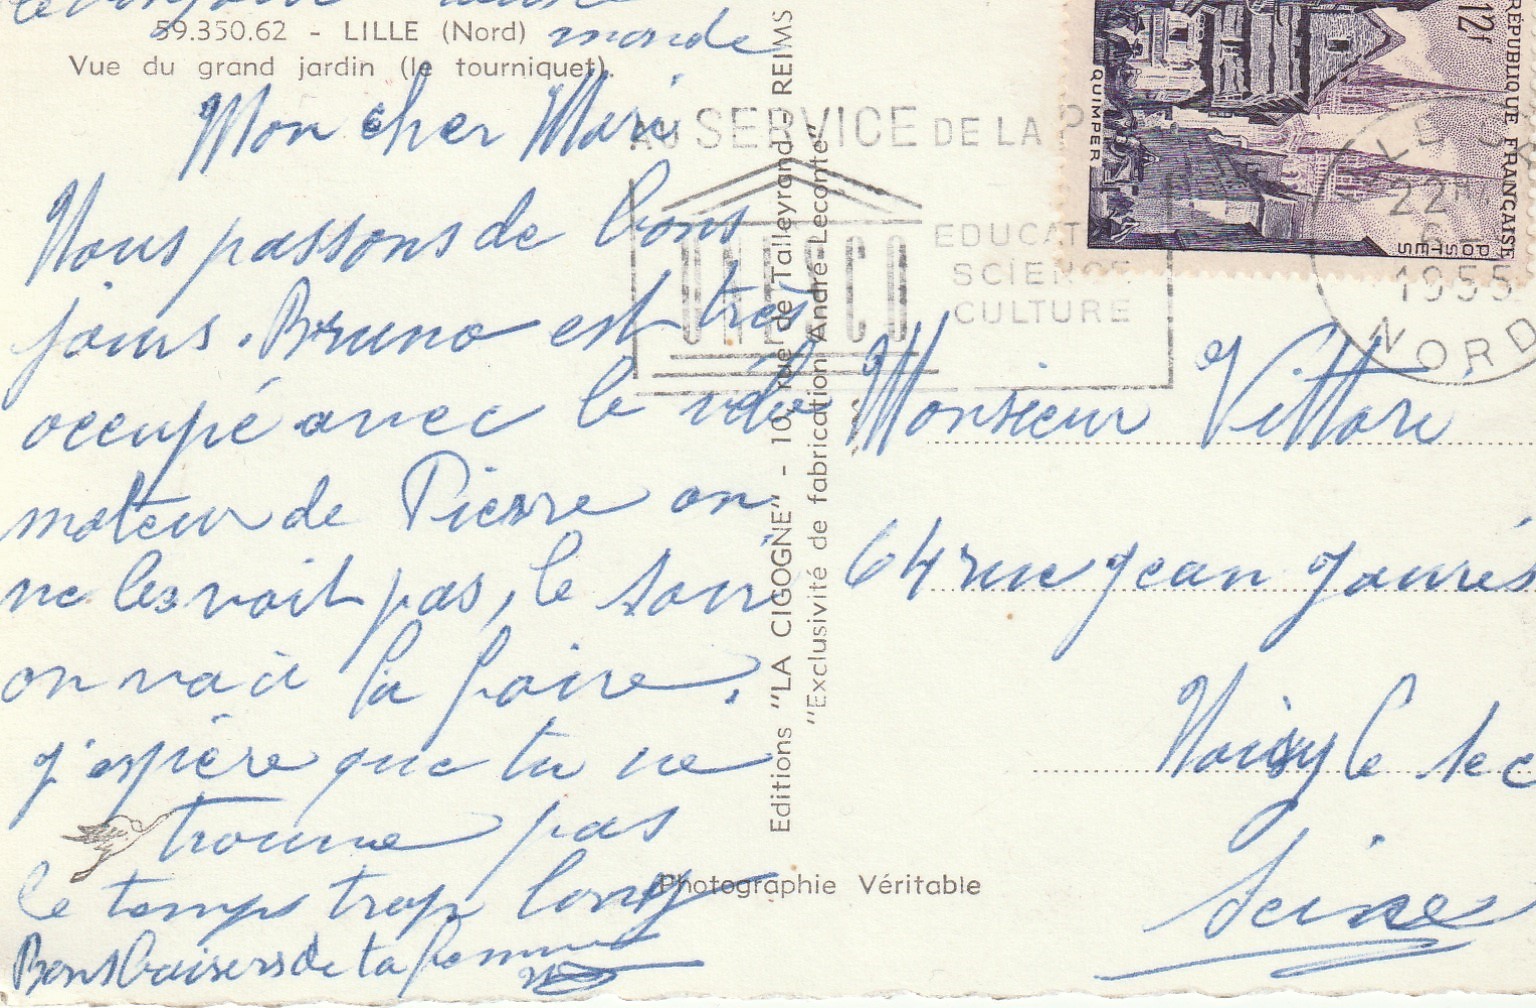 59.350.62 - LILLE (Nord)
monde
Vue du grand jardin (le tourniquet).
Mon cher Mari
Nous passons de bons
jours. Bruno est très
occupé avec le vélo
moteur de Pierre on
ne les voit pas, le soir
on va à la foire.
j'espère que tu ne
trouve pas
le temps trop long
Bons baisers de ta femme
Editions "LA CIGOGNE" - 10, rue de Talleyrand - REIMS
"Exclusivité de fabrication André Leconte"
Photographie Véritable
AU SERVICE DE LA P
UNESCO
EDUCAT
SCIENCE
CULTURE
RÉPUBLIQUE FRANÇAISE
12f
QUIMPER
POSTES
22H
1955
NORD
Monsieur Vittori
64 rue Jean Jaurès
Noisy le sec
Seine